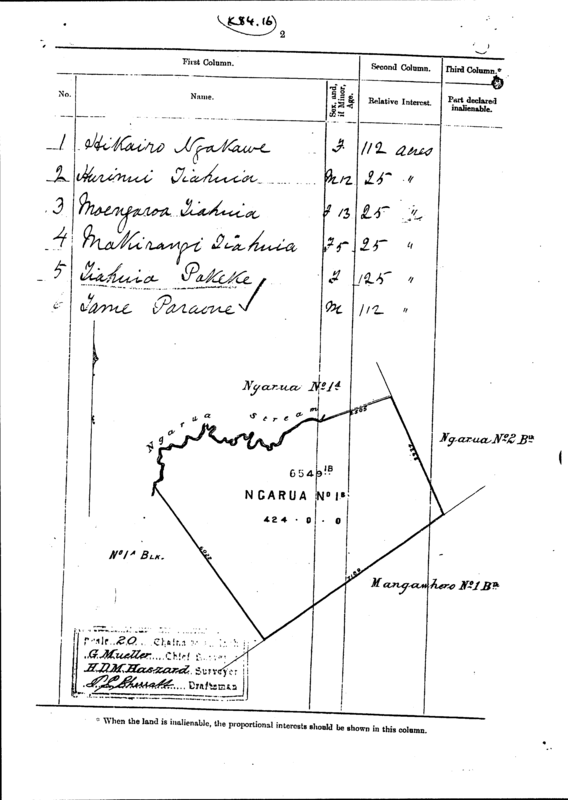 K84.16
2
First Column. Second Column. Third Column.*
No. Name. Sex, and, if Minor, Age. Relative Interest. Part declared inalienable.
1 Hikairo Ngakawe F. 112 acres
2 Hurinui Tiahuia M 12 25 "
3 Moengaroa Tiahuia F 13 25 "
4 Makirangi Tiahuia F 5 25 "
5 Tiahuia Pakeke F 125 "
6 Tame Paraone M 112 "
Ngarua No 1A
Ngarua Stream
Ngarua No 2 Bk
6549 1B
NGARUA No 1B
424 . 0 . 0
No 1A BLK.
Mangawhero No 1 Bk
Scale 20 Chains
G. Mueller Chief
H.D.M. Haszard Surveyor
Draftsman
* When the land is inalienable, the proportional interests should be shown in this column.